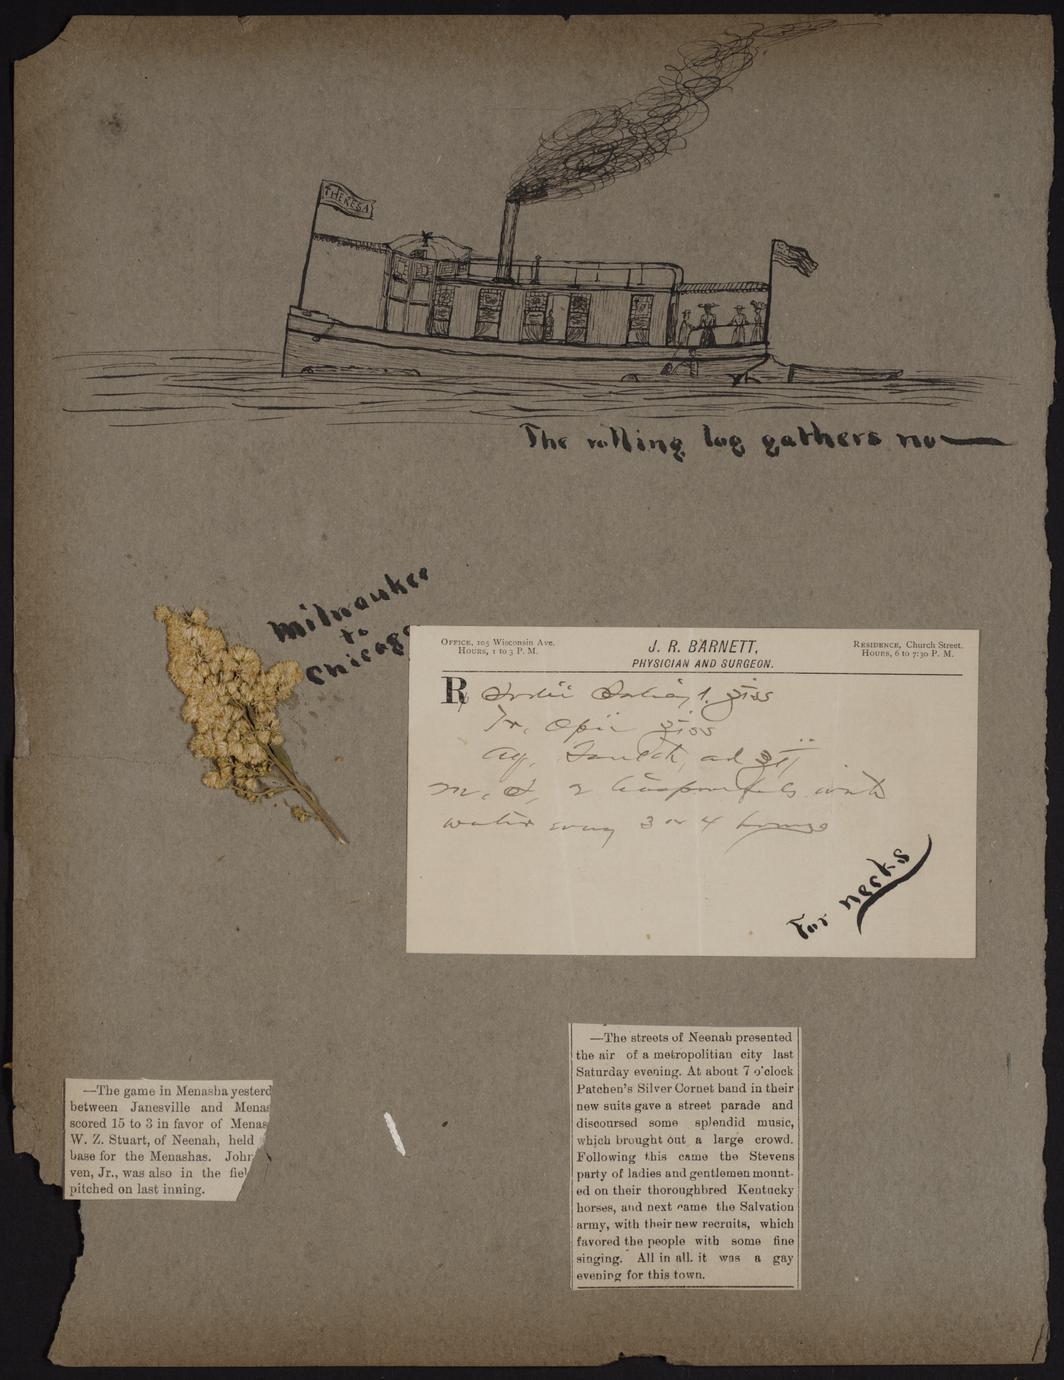 THERESA
The rolling log gathers no—
Milwaukee
to
Chicago
OFFICE, 105 Wisconsin Ave.
HOURS, 1 to 3 P. M.
J. R. BARNETT,
PHYSICIAN AND SURGEON.
RESIDENCE, Church Street.
HOURS, 6 to 7:30 P. M.
R
Tr. Opii
ad
water every 3 or 4 hours
For necks
—The streets of Neenah presented
the air of a metropolitian city last
Saturday evening. At about 7 o'clock
Patchen's Silver Cornet band in their
new suits gave a street parade and
discoursed some splendid music,
which brought out a large crowd.
Following this came the Stevens
party of ladies and gentlemen mount-
ed on their thoroughbred Kentucky
horses, and next came the Salvation
army, with their new recruits, which
favored the people with some fine
singing. All in all. it was a gay
evening for this town.
—The game in Menasha yesterd
between Janesville and Menas
scored 15 to 3 in favor of Menas
W. Z. Stuart, of Neenah, held
base for the Menashas. John
ven, Jr., was also in the fiel
pitched on last inning.